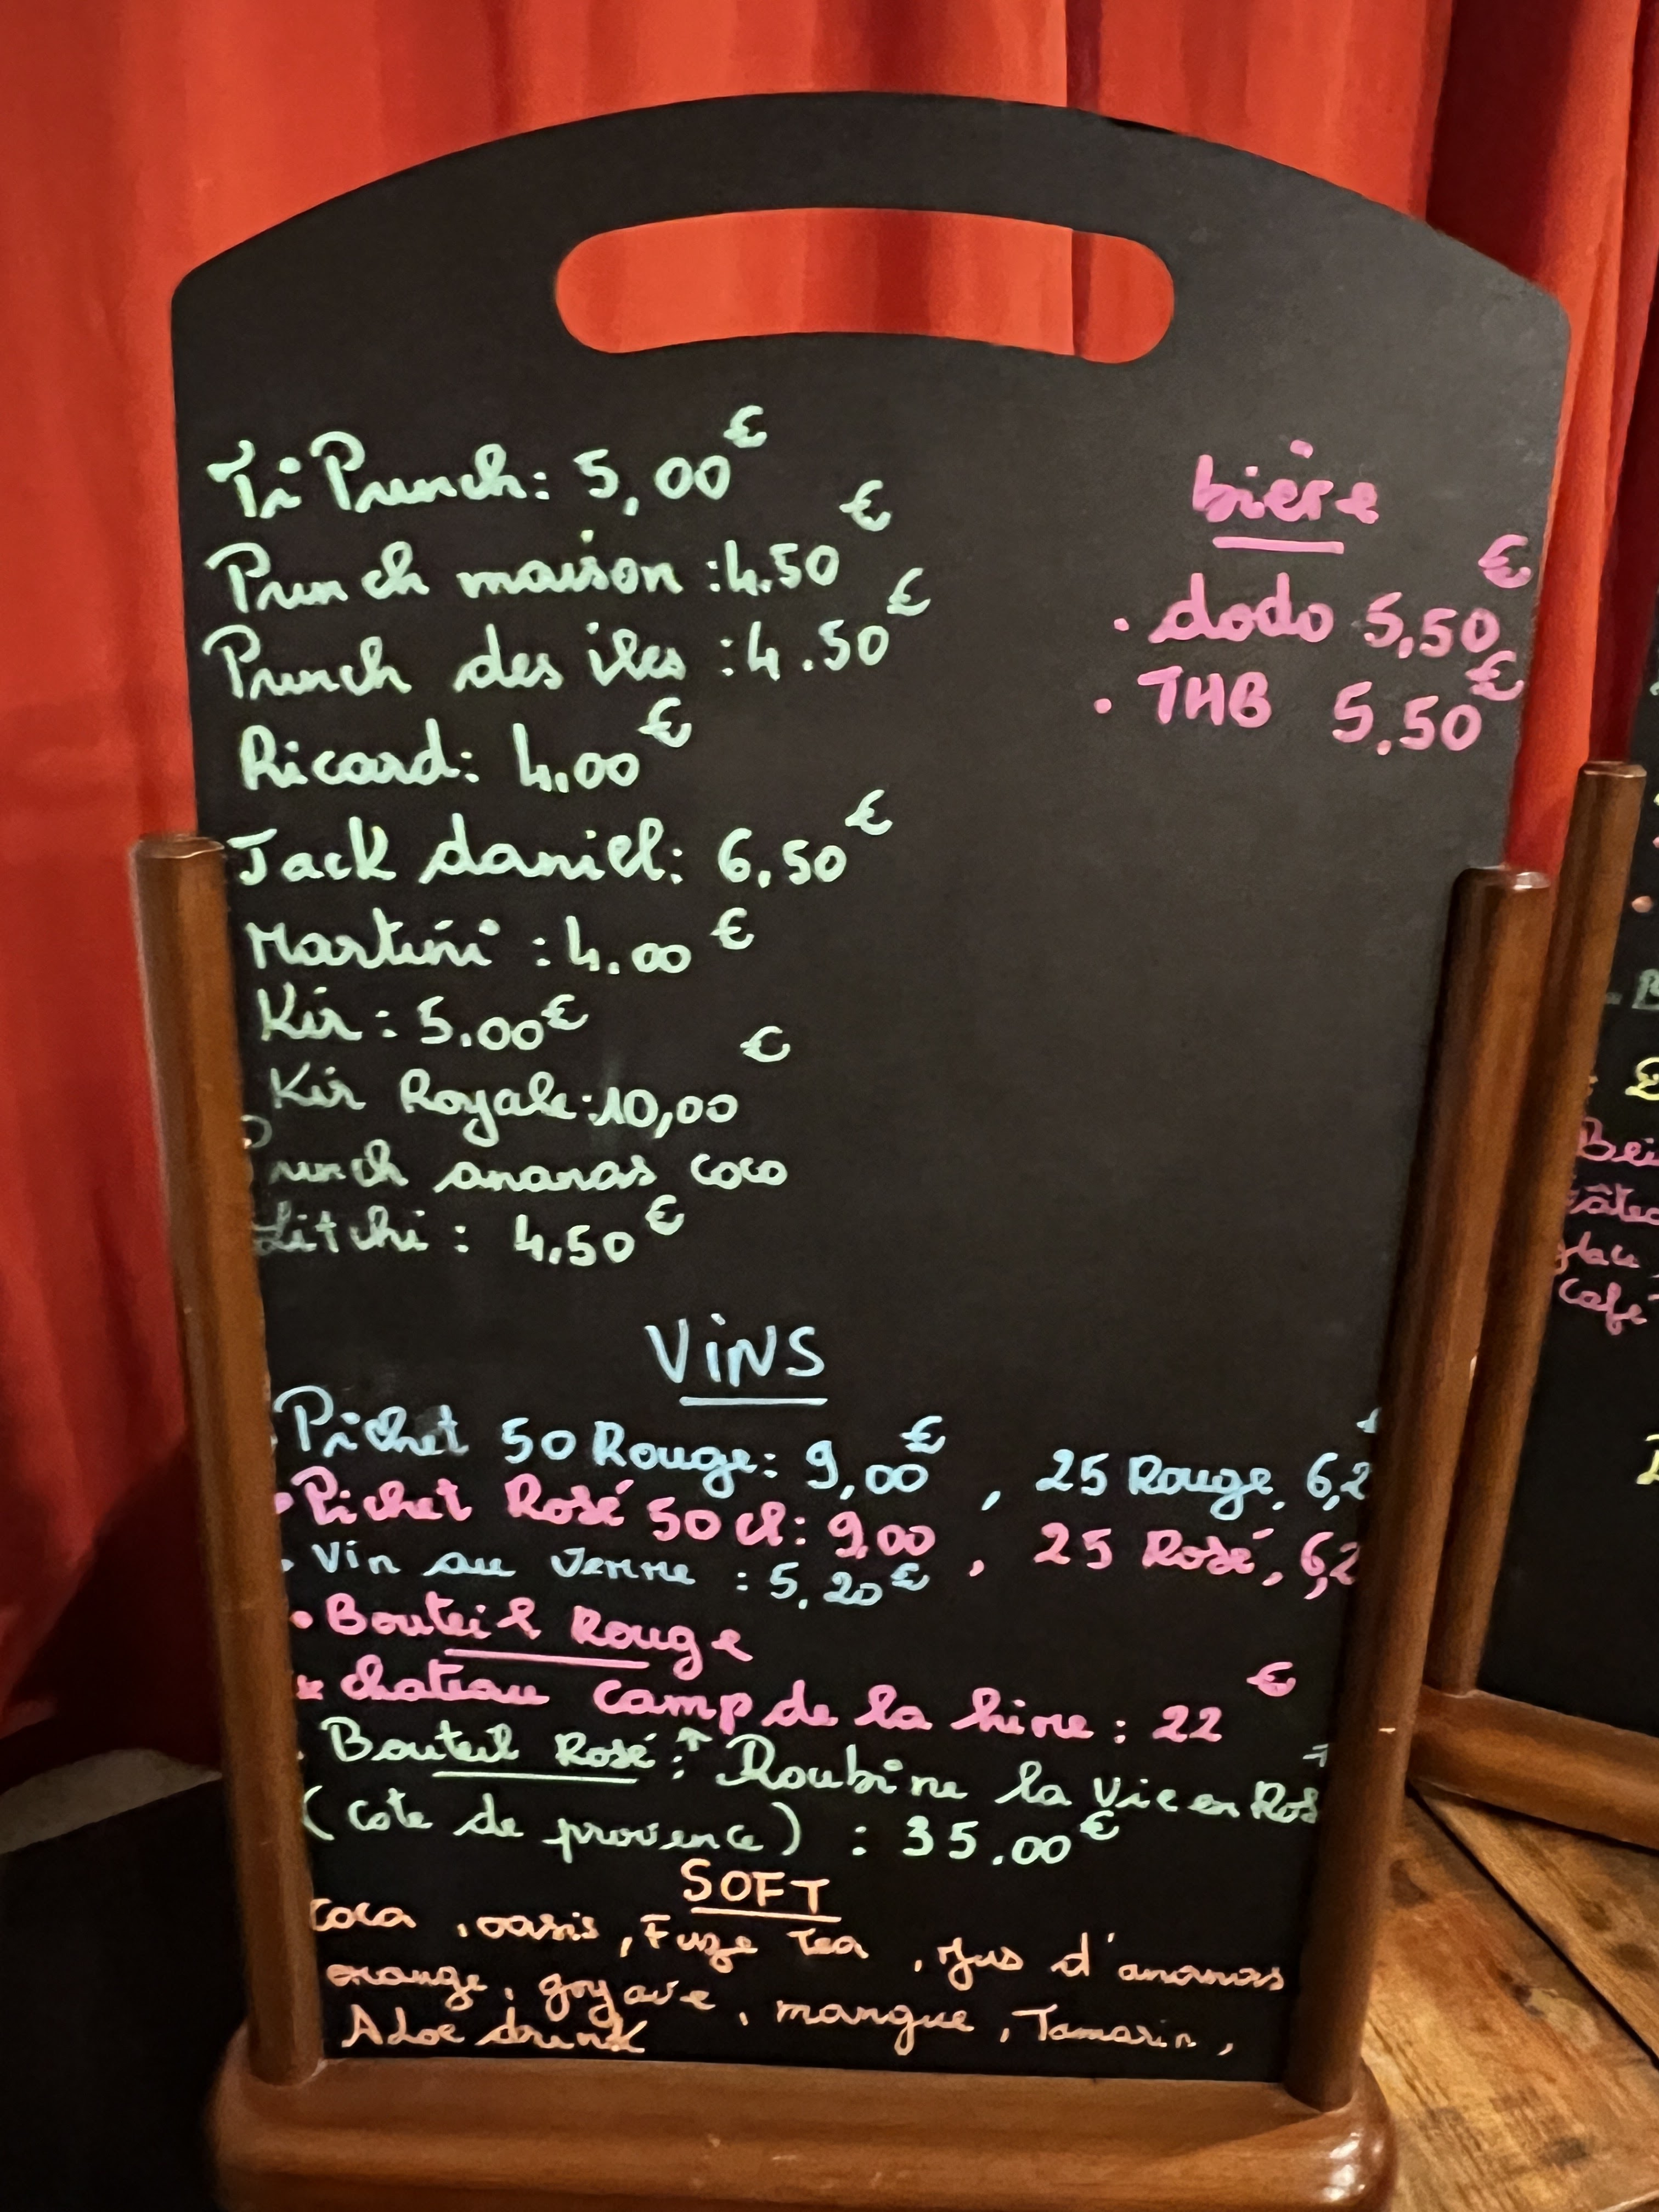 Ti Punch: 5,00€
Punch maison :4.50€
Punch des iles :4.50€
Ricard: 4.00€
Jack daniel: 6,50€
Martini :4.00€
Kir: 5.00€
Kir Royale:10,00€
Punch ananas coco
Litchi: 4.50€
bière
• dodo 5,50€
• THB 5,50€
ViNS
Pichet 50 Rouge: 9,00€, 25 Rouge, 6,2
• Pichet Rosé 50 cl: 9,00, 25 Rosé, 6,2
• Vin au Verre : 5,20€
• Bouteil Rouge
* chateau camp de la hire : 22€
. Bouteil Rosé: Roubine la Vie en Ros
(cote de provence) : 35.00€
SOFT
Coca, oasis, Fuze Tea, Jus d'ananas
orange, goyave, mangue, Tamarin,
Aloe drink
Bei
glace
Café